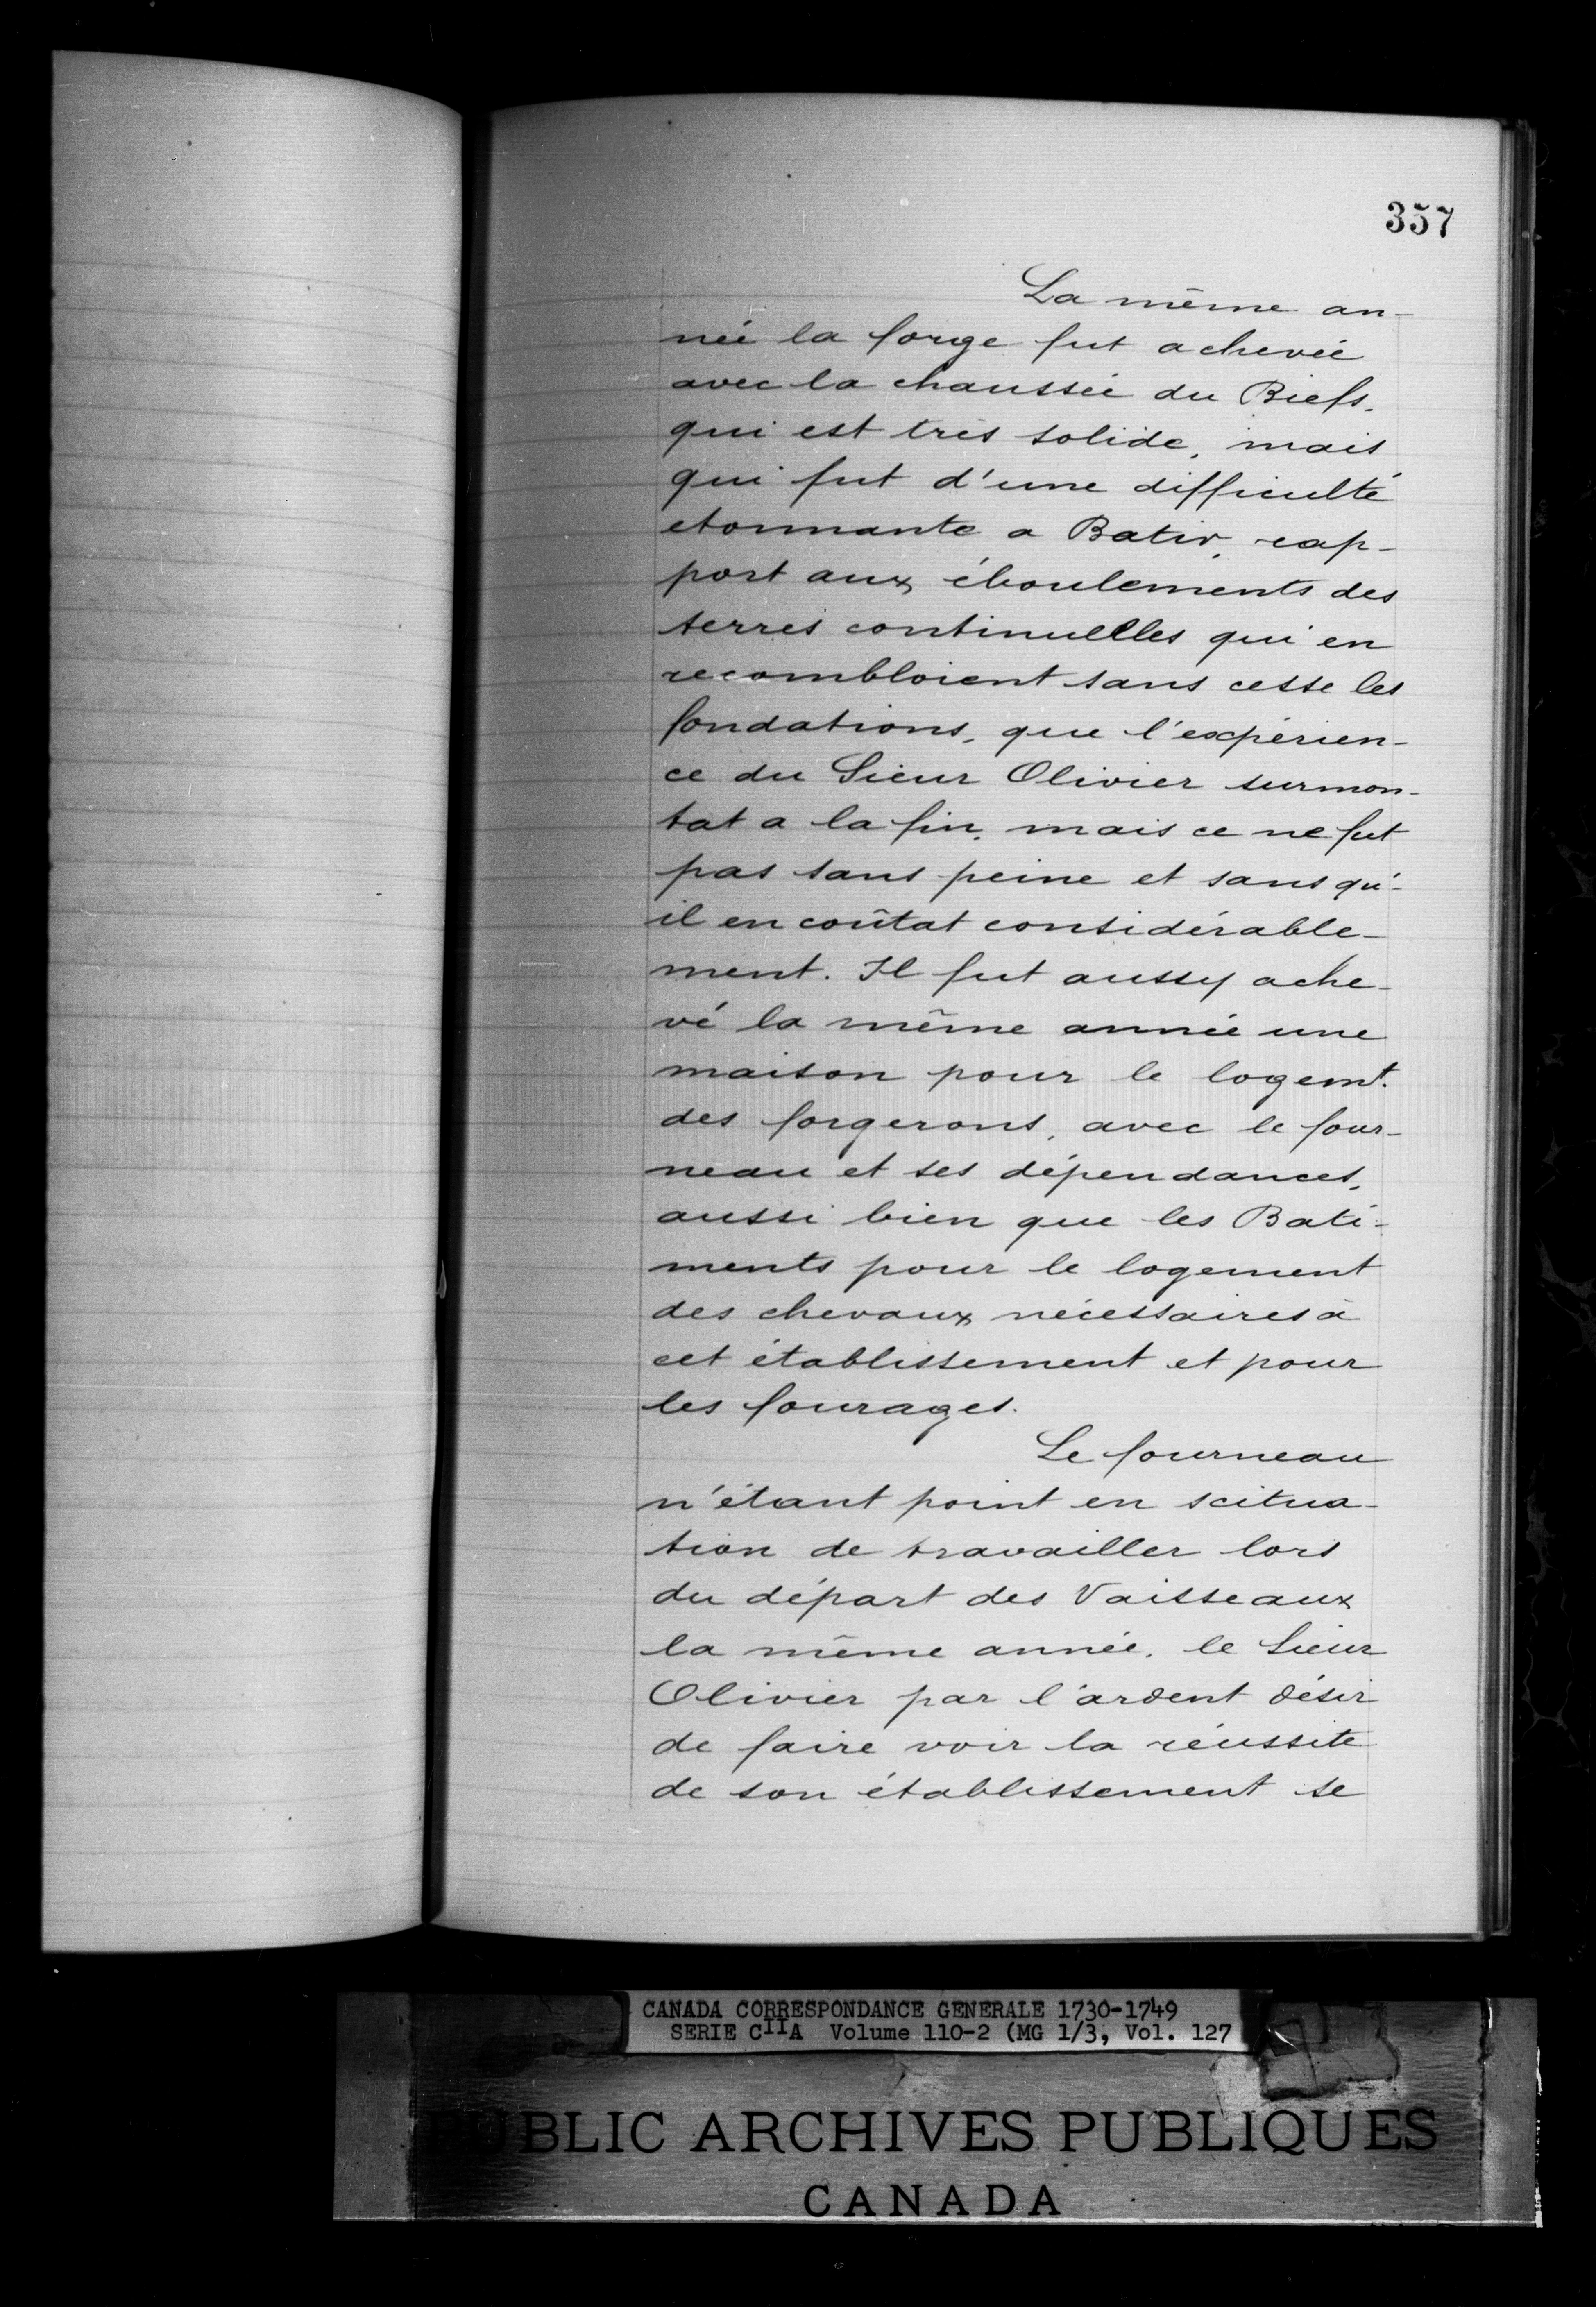 357
La même an-
née la forge fut achevée
avec la chaussée du Biefs,
qui est très solide, mais
qui fut d'une difficulté
etonnante a Batir, rap-
port aux éboulements des
terres continuelles qui en
recombloient sans cesse les
fondations, que l'expérien-
ce du Sieur Olivier surmon-
tat a la fin, mais ce ne fut
pas sans peine et sans qu'-
il en coûtat considérable-
ment. Il fut aussy ache-
vé la même année une
maison pour le logemt.
des forgerons, avec le four-
neau et ses dépendances,
aussi bien que les Bati-
ments pour le logement
des chevaux nécessaires à
cet établissement et pour
les fourages.
Le fourneau
n'étant point en scitua-
tion de travailler lors
du départ des Vaisseaux
la même année, le Sieur
Olivier par l'ardent désir
de faire voir la réussite
de son établissement se
CANADA CORRESPONDANCE GENERALE 1730-1749
SERIE CIIA Volume 110-2 (MG 1/3, Vol. 127
PUBLIC ARCHIVES PUBLIQUES
CANADA